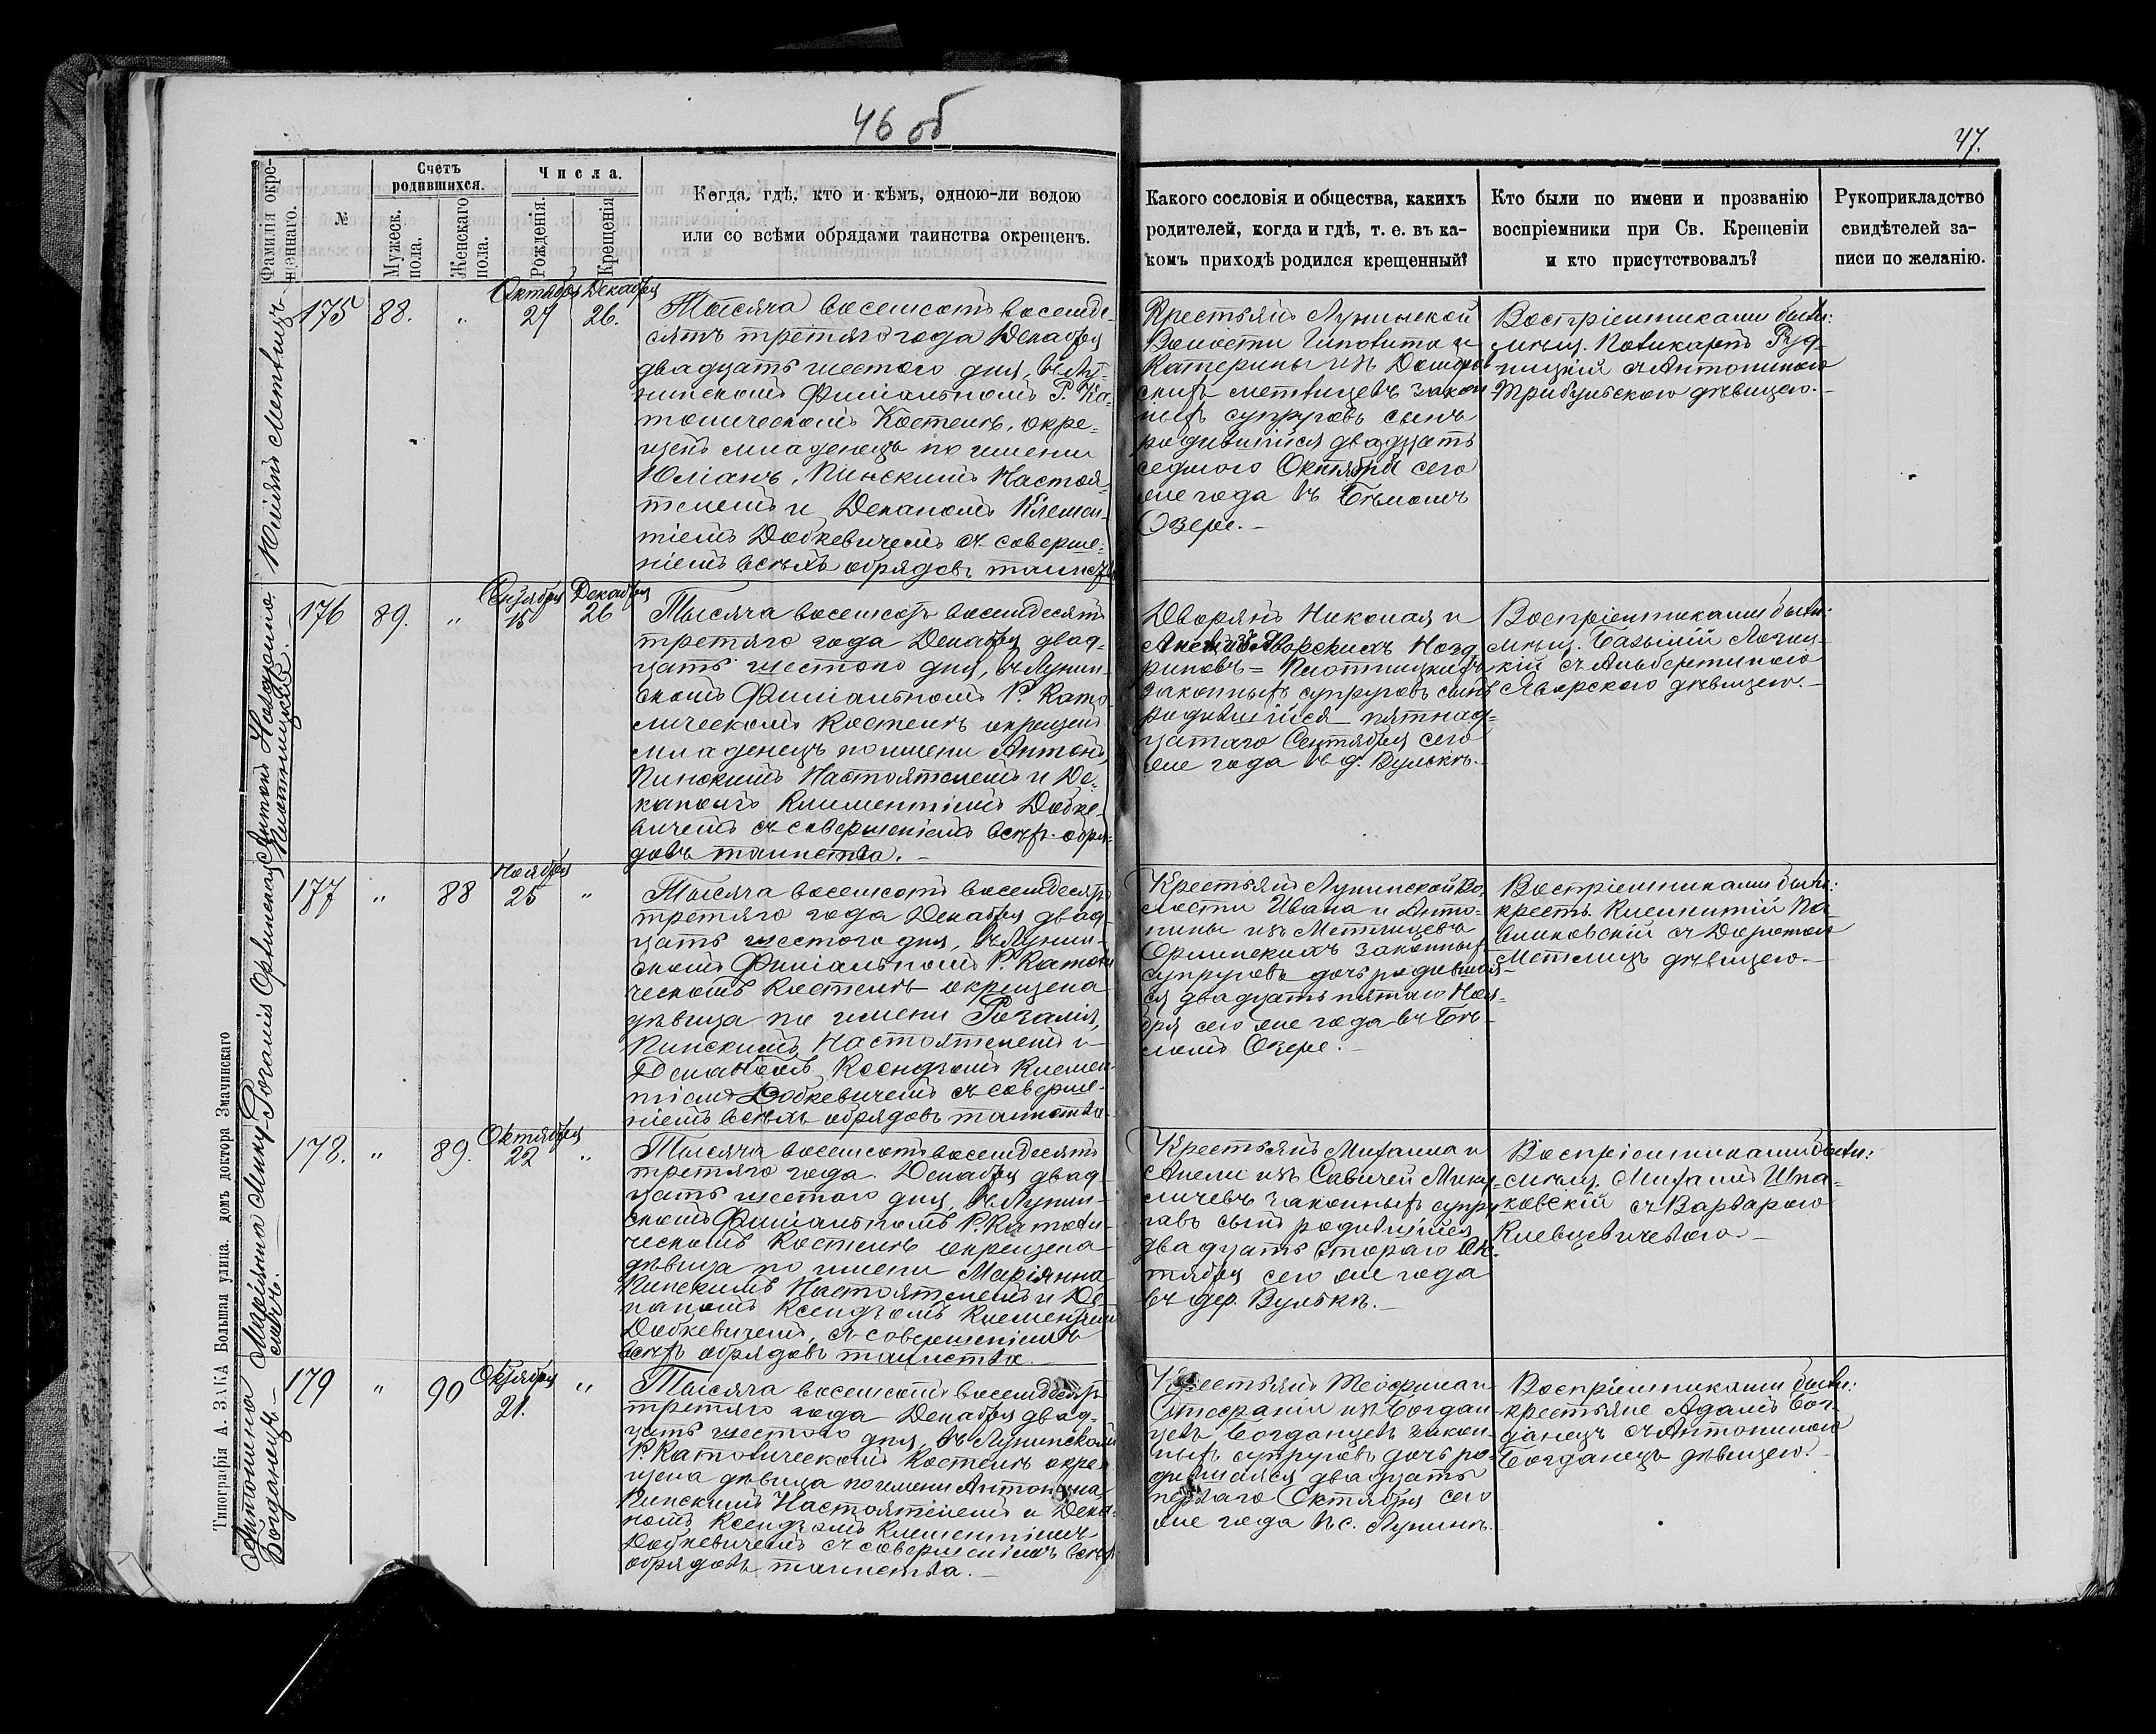 46 об
47.
Фамилія окре-
щеннаго.
№
Счетъ
родившихся.
Мужеск.
пола.
Женскаго
пола.
Числа.
Рожденія.
Крещенія
Когда, гдѣ, кто и кѣмъ, одною-ли водою
или со всѣми обрядами таинства окрещенъ.
Какого сословія и общества, какихъ
родителей, когда и гдѣ, т. е. въ ка-
комъ приходѣ родился крещенный?
Кто были по имени и прозванію
воспріемники при Св. Крещеніи
и кто присутствовалъ?
Рукоприкладство
свидѣтелей за-
писи по желанію.
175
88.
"
Октября
27
Декабря
26.
Тысяча восемсотъ восемде-
сятъ третяго года Декабря
двадцать шестого дня, въ Лу-
нинскомъ Филіальномъ Р. Ка-
толическомъ Костелѣ, окре-
щенъ младенецъ по имени
Юліанъ, Пинскимъ Настоя-
телемъ и Деканомъ Клемен-
тіемъ Добкевичемъ съ соверше-
ніемъ всѣхъ обрядовъ таинства
Крестьянъ Лунинской
Волости Ипполита и
Катерины изъ
закон-
ныхъ супруговъ сынъ
родившійся двадцать
седмого Октября сего
же года въ Бѣломъ
Озере.
Воспріемниками были:
мѣщ. Поликарпъ Руд-
ницкій съ Антониною
Трибульскою дѣвицею.
176
89.
"
Сентября
15
Декабря
26
Тысяча восемсотъ восемдесятъ
третяго года Декабря двад-
цать шестого дня, въ Лунин-
скомъ Филіальномъ Р. Като-
лическомъ Костелѣ окрещенъ
младенецъ по имени Антонъ,
Пинскимъ Настоятелемъ и Де-
каномъ Климентіемъ Добке-
вичемъ съ совершеніемъ всѣхъ обря-
довъ таинства.
Дворянъ Николая и
изъ Яворскихъ
Плотницкихъ
законныхъ супруговъ сынъ
родившійся пятнад-
цатаго Сентября сего
же года въ д. Вулькѣ.
Воспріемниками были:
мѣщ. Базылій
кій съ Альбертиною
Яворскою дѣвицею.
177
"
88
Ноября
25
"
Тысяча восемсотъ восемдесятъ
третяго года Декабря двад-
цать шестого дня, въ Лунин-
скомъ Филіальномъ Р. Католи-
ческомъ Костелѣ окрещена
дѣвица по имени Розалія,
Пинскимъ Настоятелемъ и
Деканомъ Ксендзомъ Клемен-
тіемъ Добкевичемъ съ соверше-
ніемъ всѣхъ обрядовъ таинства
Крестьянъ Лунинской Во-
лости Ивана и Анто-
нины изъ Метлицевъ
законныхъ
супруговъ дочь родившая-
ся двадцать пятаго Ноя-
бря сего же года въ Бѣ-
ломъ Озере.
Воспріемниками были:
крест. Клементій Па-
влиновскій съ Доротою
Метлицъ дѣвицею.
178.
"
89.
Октября
22
"
Тысяча восемсотъ восемдесятъ
третяго года Декабря двад-
цать шестого дня, въ Лунин-
скомъ Филіальномъ Р. Католи-
ческомъ Костелѣ окрещена
дѣвица по имени Маріянна
Пинскимъ Настоятелемъ и Де-
каномъ Ксендзомъ Клементіемъ
Добкевичемъ, съ совершеніемъ
всѣхъ обрядовъ таинства.
Крестьянъ Михаила и
Анели изъ Савичей Мику-
личевъ законныхъ супру-
говъ сынъ родившійся
двадцать втораго Ок-
тября сего же года
въ дер. Вулькѣ.
Воспріемниками были:
мѣщ. Михаилъ Шпа-
ковскій съ Варварою
179
"
90
Октября
21.
"
Тысяча восемсотъ восемдесятъ
третяго года Декабря двад-
цать шестого дня, въ Лунинскомъ
Р. Католическомъ Костелѣ окре-
щена дѣвица по имени Антонина
Пинскимъ Настоятелемъ и Дека-
номъ Ксендзомъ Клементіемъ
Добкевичемъ съ совершеніемъ всѣхъ
обрядовъ таинства.
Крестьянъ Теофила и
Стефаніи изъ Богдан-
цевъ Богданцевъ закон-
ныхъ супруговъ дочь ро-
дившаяся двадцать
перваго Октября сего
же года въ с. Лунинѣ.
Воспріемниками были:
крестьяне Адамъ Бог-
данецъ съ Антониною
Богданецъ дѣвицею.
Юліянъ Метлицъ
Антонъ
Плотницкій.
Розалія
Маріянна Мику-
личъ.
Антонина
Богданецъ
Типографія А. ЗАКА Большая улица. домъ доктора Змачинскаго